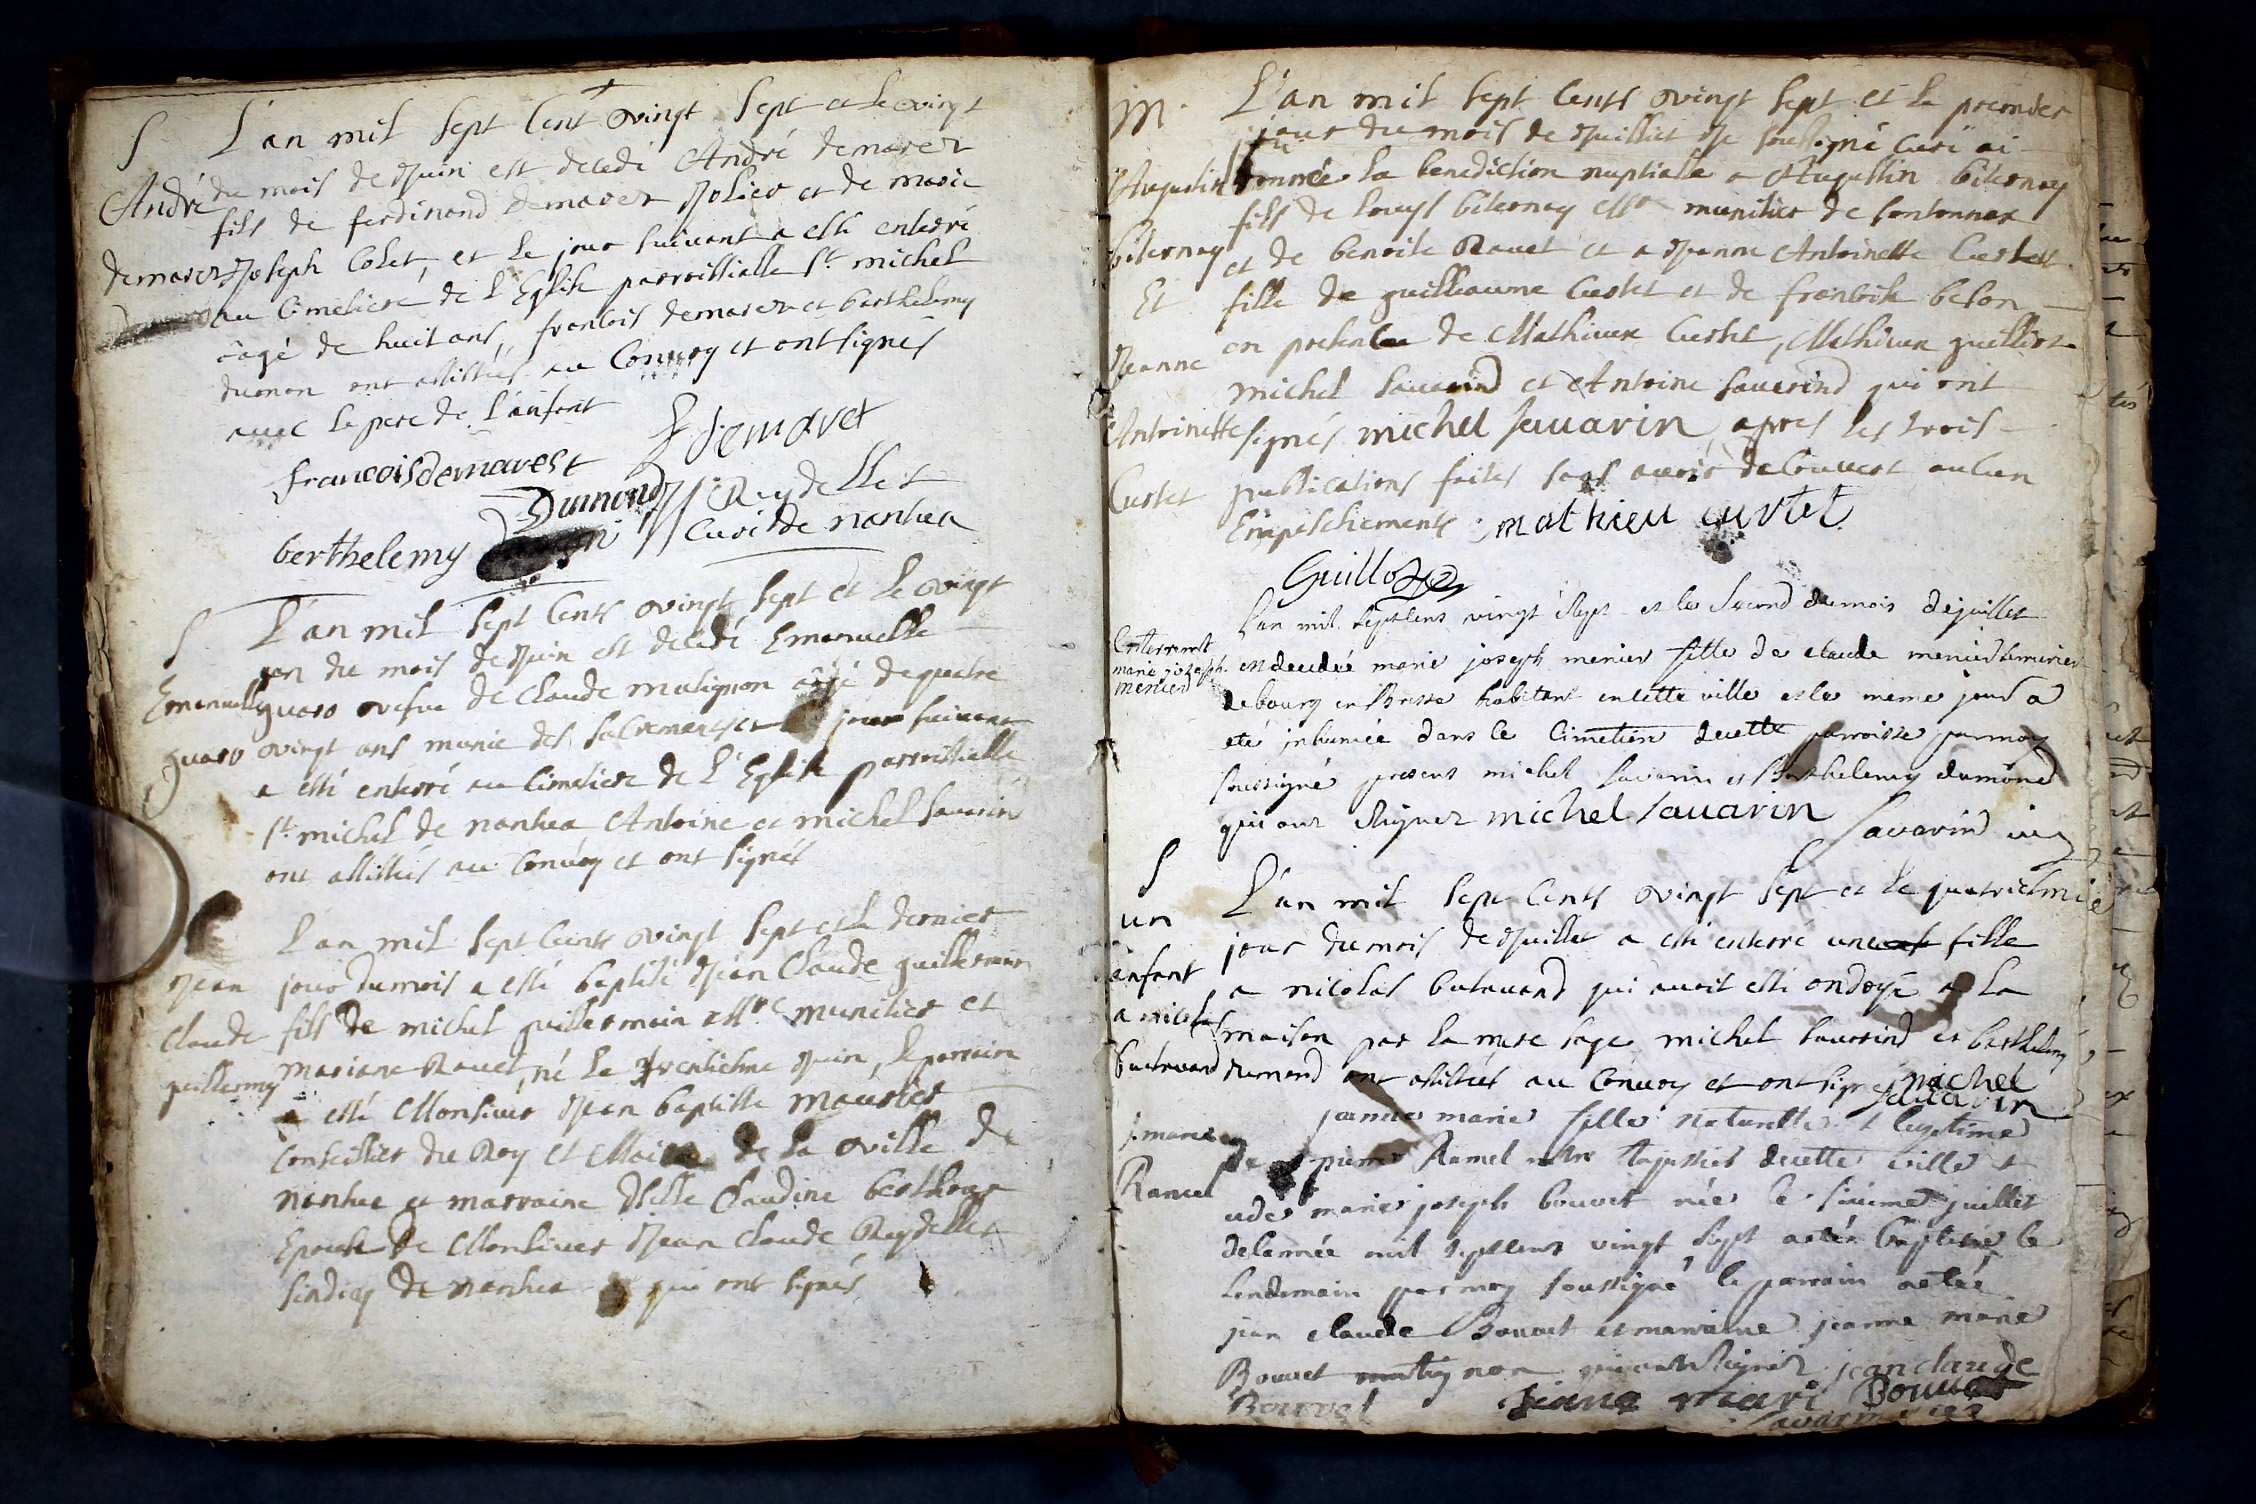 S L'an mil sept cent vingt sept et le vingt
André du mois de Juin est decedé André demarer
fils de ferdinand demarer Jolier et de marie
demarer Joseph Colet, et le jour suivant a esté enterré
au Cimetiere de l'Eglise parroissialle St michel
âagé de huit ans, francois demarer et berthelemy
dumon ont assistés au Convoy et ont signés
avec le pere de l'anfant
francois demarest F demaret
Dumond J Reydellet
berthelemy Curé de nantua
S L'an mil sept Cents vingt sept et le vingt
du mois de Juin est decedé Emanuelle
Emanuelle guaro vefve de Claude malignon âgé de quatre
guaro vingt ans munie des sacrements et jour suivant
a esté enterré au Cimetiere de l'Eglise parroissialle
St michel de nantua Antoine et michel savarin
ont assistés au Convoy et ont signés
L'an mil sept Cents vingt sept et le dernier
Jean jour du mois a esté baptisé Jean Claude guillermin
Claude fils de michel guillermin munitier et
mariane Ravet, né le trentiesme Juin, le parrain
guillermin a esté Monsieur Jean baptiste
Conseiller du Roy et Maire de la ville de
nantua et marraine Claudine
Epouse de Monsieur Jean Claude Reydellet
sindicq de nantua qui ont signés
M. L'an mil sept Cents vingt sept et le premier
jour du mois de Juillet Je soussigné Curé ai
Augustin donnée la benediction nuptialle a Augustin bilernay
fils de louys bilernay munitier de
bilernay et de benoite Ravet et a Jeanne Antoinette Curtet
Et fille de guilleaume Curtet et de francoise beson
en presence de Mathieux Curtet, Mathieux guilliot
Jeanne michel savarind et Antoine savarind qui ont
Antoinette signés michel savarin, apres les trois
Curtet publications faites sans avoir decouvert aulcun
Empeschements mathieu curtet
Guillot
Lan mil septcens vingt sept et le second du mois de juillet
Enterrement
marie joseph est decedée marie joseph menier fille de claude menier
menier de bourg en Bresse habitant en cette ville et le meme jour a
eté inhumée dans le Cimetiere de cette parroisse par moy
soussigné presens michel savarin et Berthelemy dumond
qui ont signez michel savarin
Savarind
S L'an mil sept Cents vingt sept et le quatriesme
un jour du mois de Juillet a esté enterré une fille
enfant a nicolas butavand qui avoit esté ondoyé a la
a nicolas maison par la mere sage michel savarind et berthelemy
butavand dumond ont assistés au Convoy et ont signés michel
savarin
jeanne marie fille naturelle et legitime
j. marie de pierre Ramel de cette ville et
Ramel de marie joseph bouvet née le juillet
de lannée mil septcens vingt sept a eté baptisée le
lendemain par moy soussigné le parrain a eté
jean claude Bouvet et marraine jeanne marie
Bouvet qui ont signés jean claude
Bouvet Jeane Mari Bouvet